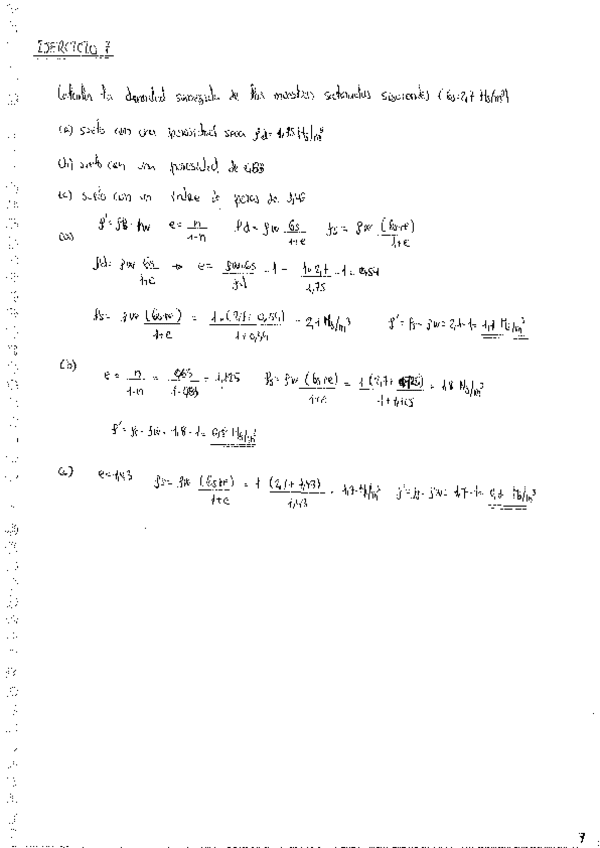 EJERCICIO 7
Calcular la densidad sumergida de las muestras saturadas siguientes (Gs=2,7 Mg/m³)
(a) suelo con una densidad seca ρd = 1,75 Mg/m³
(b) suelo con una porosidad de
(c) suelo con un índice de poros de 1,43
(a) ρ' = ρs - ρw e = n/1-n ρd = ρw Gs/1+e ρs = ρw (Gs+e)/1+e
ρd = ρw Gs/1+e → e = ρw·Gs/ρd - 1 = 1·2,7/1,75 - 1 = 0,54
ρs = ρw (Gs+e)/1+e = 1·(2,7+0,54)/1+0,54 = 2,1 Mg/m³ ρ' = ρs - ρw = 2,1-1 = 1,1 Mg/m³
(b) e = n/1-n = = ρs = ρw (Gs+e)/1+e = = 1,8 Mg/m³
ρ' = ρs - ρw = 1,8 - 1 = 0,8 Mg/m³
(c) e = 1,43 ρs = ρw (Gs+e)/1+e = 1 (2,7+1,43)/1,43 = 1,7 Mg/m³ ρ' = ρs - ρw = 1,7-1 = 0,7 Mg/m³
7